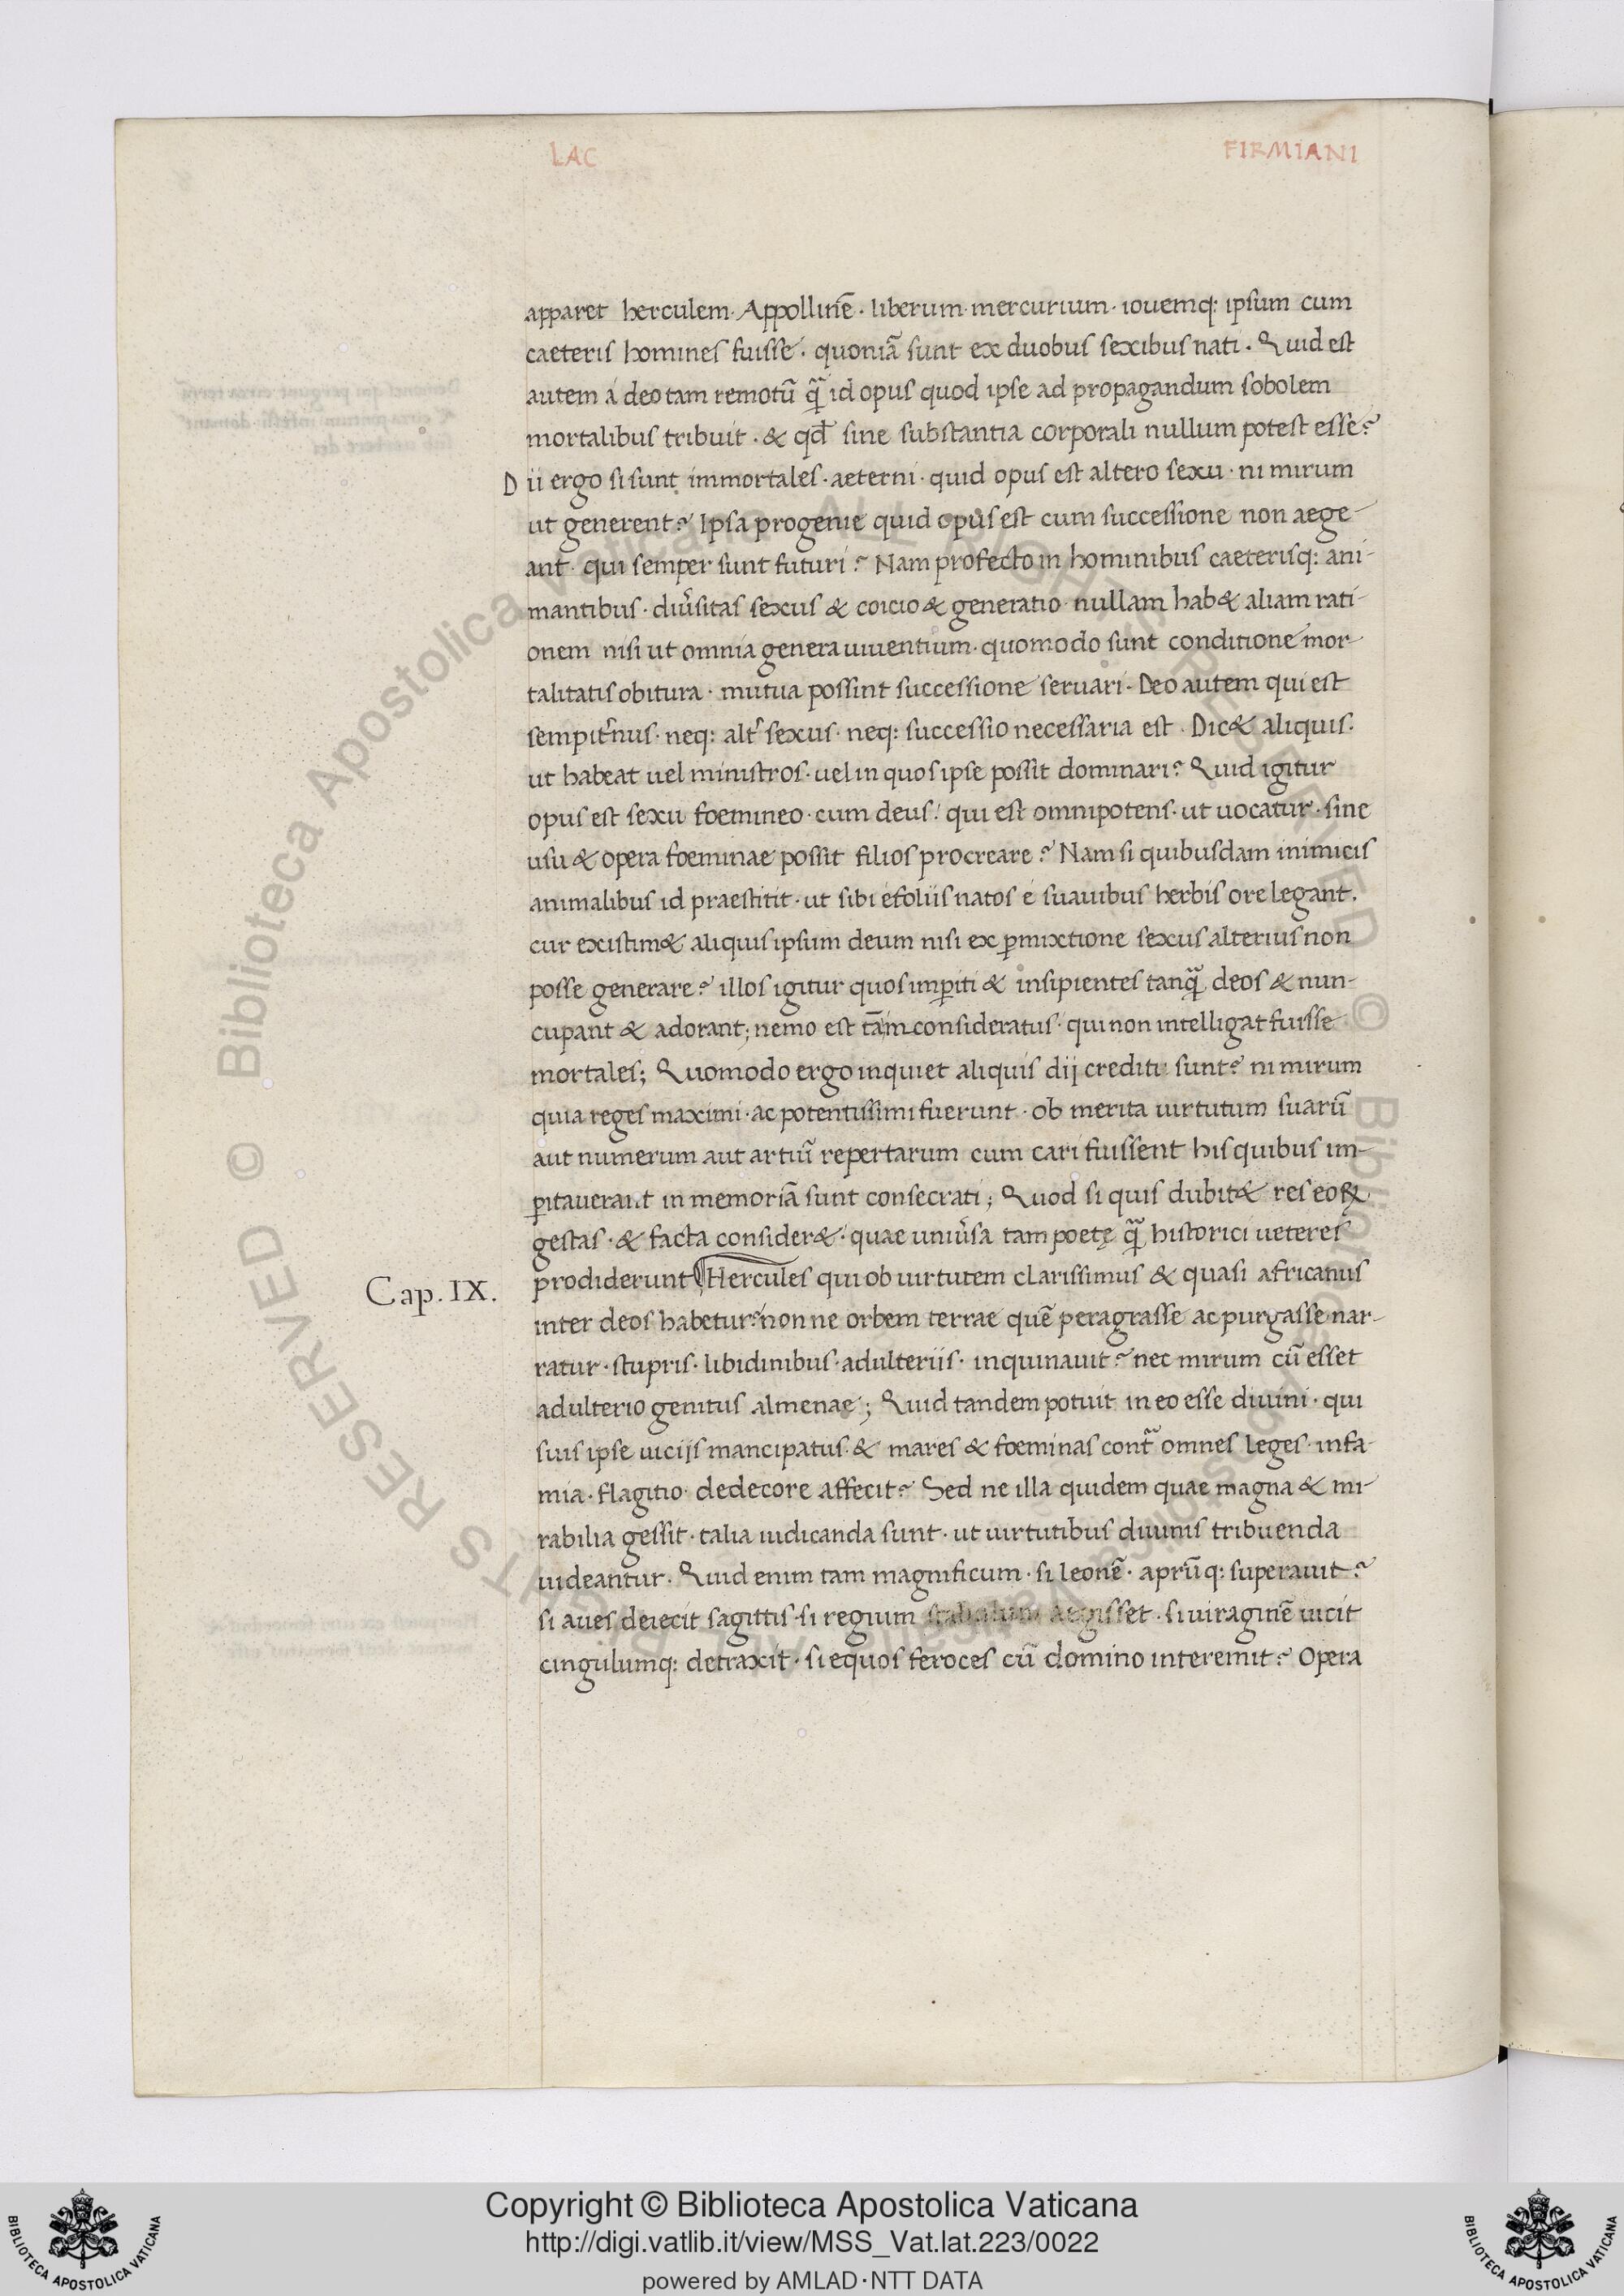 LAC FIRMIANI
apparet herculem· Appollinē· liberum· mercurium· iouemq: ipsum cum
caeteris homines fuisse· quoniā sunt ex duobus sexibus nati· Quid est
autem á deo tam remotū qᷓ id opus quod ipse ad propagandum sobolem
mortalibus tribuit· & qđ sine substantia corporali nullum potest esse?
Dii ergo si sunt immortales· aeterni· quid opus est altero sexu· ni mirum
ut generent? Ipsa progenie quid opus est cum successione non aege-
ant· qui semper sunt futuri? Nam profecto in hominibus caeterisq: ani-
mantibus· diu͛sitas sexus & coicio & generatio nullam hab& aliam rati-
onem nisi ut omnia genera uiuentium· quomodo sunt conditione mor-
talitatis obitura· mutua possint successione seruari· Deo autem qui est
sempit͛nus· neq: alt͛ sexus· neq: successio necessaria est· Dic& aliquis·
ut habeat uel ministros· uel in quos ipse possit dominari? Quid igitur
opus est sexu foemineo· cum deus· qui est omnipotens· ut uocatur· sine
usu & opera foeminae possit filios procreare? Nam si quibusdam inimicis
animalibus id praestitit· ut sibi é foliis natos é suauibus herbis ore legant·
cur existim& aliquis ipsum deum nisi ex ꝑmixtione sexus alterius non
posse generare? illos igitur quos imꝑiti & insipientes tanqᷓ deos & nun-
cupant & adorant; nemo est tām consideratus· qui non intelligat fuisse
mortales; Quomodo ergo inquiet aliquis dij crediti sunt? ni mirum
quia reges maximi· ac potentissimi fuerunt· ob merita uirtutum suarū
aut numerum aut artiū repertarum cum cari fuissent his quibus im-
ꝑitauerant in memoriā sunt consecrati; Quod si quis dubit& res eoꝝ
gestas· & facta consider&· quae uniu͛sa tam poetę qᷓ historici ueteres
Cap. IX. prodiderunt Hercules qui ob uirtutem clarissimus & quasi africanus
inter deos habetur? non ne orbem terrae quē peragrasse ac purgasse nar-
ratur· stupris· libidinibus· adulteriis· inquinauit? nec mirum cū esset
adulterio genitus almenae; Quid tandem potuit in eo esse diuini· qui
suis ipse uicijs mancipatus· & mares & foeminas contᷓ omnes leges· infa-
mia· flagitio· dedecore affecit? Sed ne illa quidem quae magna & mi-
rabilia gessit· talia iudicanda sunt· ut uirtutibus diuinis tribuenda
uideantur· Quid enim tam magnificum· si leonē· aprūq: superauit?
si aues deiecit sagittis· si regium stabulum aegisset· si uiraginē uicit
cingulumq: detraxit· si equos feroces cū domino interemit? Opera
Copyright © Biblioteca Apostolica Vaticana
http://digi.vatlib.it/view/MSS_Vat.lat.223/0022
powered by AMLAD·NTT DATA